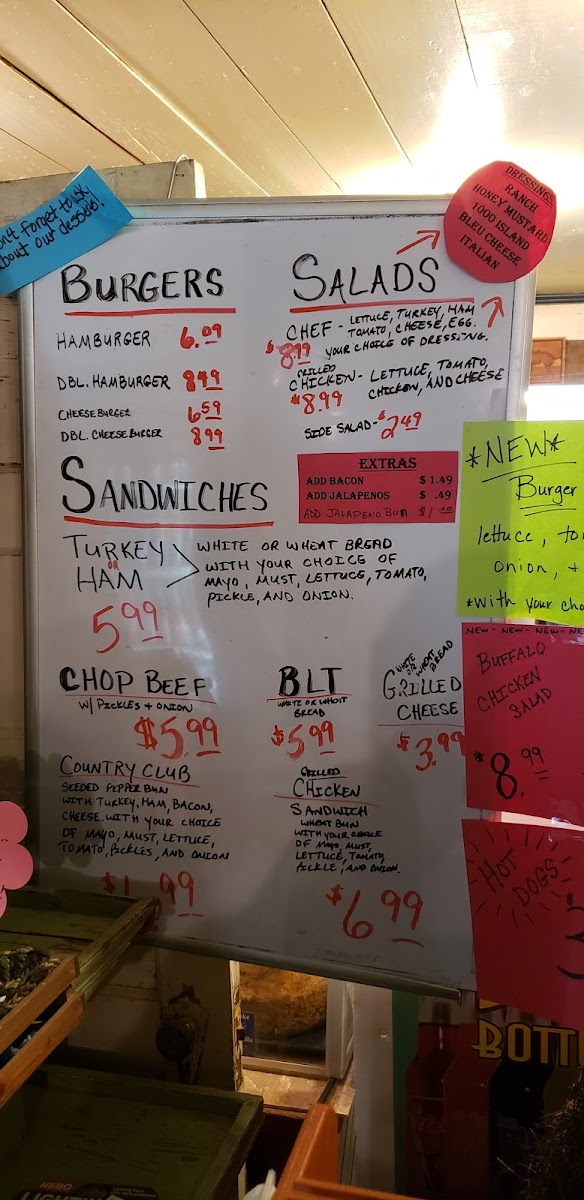 Don't forget to ask
about our desserts!
DRESSINGS
RANCH
HONEY MUSTARD
1000 ISLAND
BLEU CHEESE
ITALIAN
BURGERS
HAMBURGER 6.09
DBL. HAMBURGER 8.49
CHEESEBURGER 6.59
DBL. CHEESEBURGER 8.99
SALADS
CHEF - LETTUCE, TURKEY, HAM
TOMATO, CHEESE, EGG.
$8.99 YOUR CHOICE OF DRESSING.
GRILLED
CHICKEN - LETTUCE, TOMATO,
$8.99 CHICKEN, AND CHEESE
SIDE SALAD - $2.49
EXTRAS
ADD BACON $1.49
ADD JALAPENOS $ .49
ADD JALAPENO BUN $1.00
SANDWICHES
TURKEY
OR
HAM
WHITE OR WHEAT BREAD
WITH YOUR CHOICE OF
MAYO, MUST, LETTUCE, TOMATO,
PICKLE, AND ONION.
5.99
CHOP BEEF
W/ PICKLES + ONION
$5.99
BLT
WHITE OR WHEAT
BREAD
$5.99
GRILLED
CHEESE
WHITE OR WHEAT
BREAD
$3.99
COUNTRY CLUB
SEEDED PEPPER BUN
WITH TURKEY, HAM, BACON,
CHEESE. WITH YOUR CHOICE
OF MAYO, MUST, LETTUCE,
TOMATO, PICKLES, AND ONION
99
GRILLED
CHICKEN
SANDWICH
WHEAT BUN
WITH YOUR CHOICE
OF MAYO, MUST,
LETTUCE, TOMATO,
PICKLE, AND ONION.
$6.99
*NEW*
Burger
lettuce, to
onion, +
*with your cho
NEW - NEW - NEW - NE
BUFFALO
CHICKEN
SALAD
$8.99
HOT
DOGS
BOTT
HERO
LIGHTN